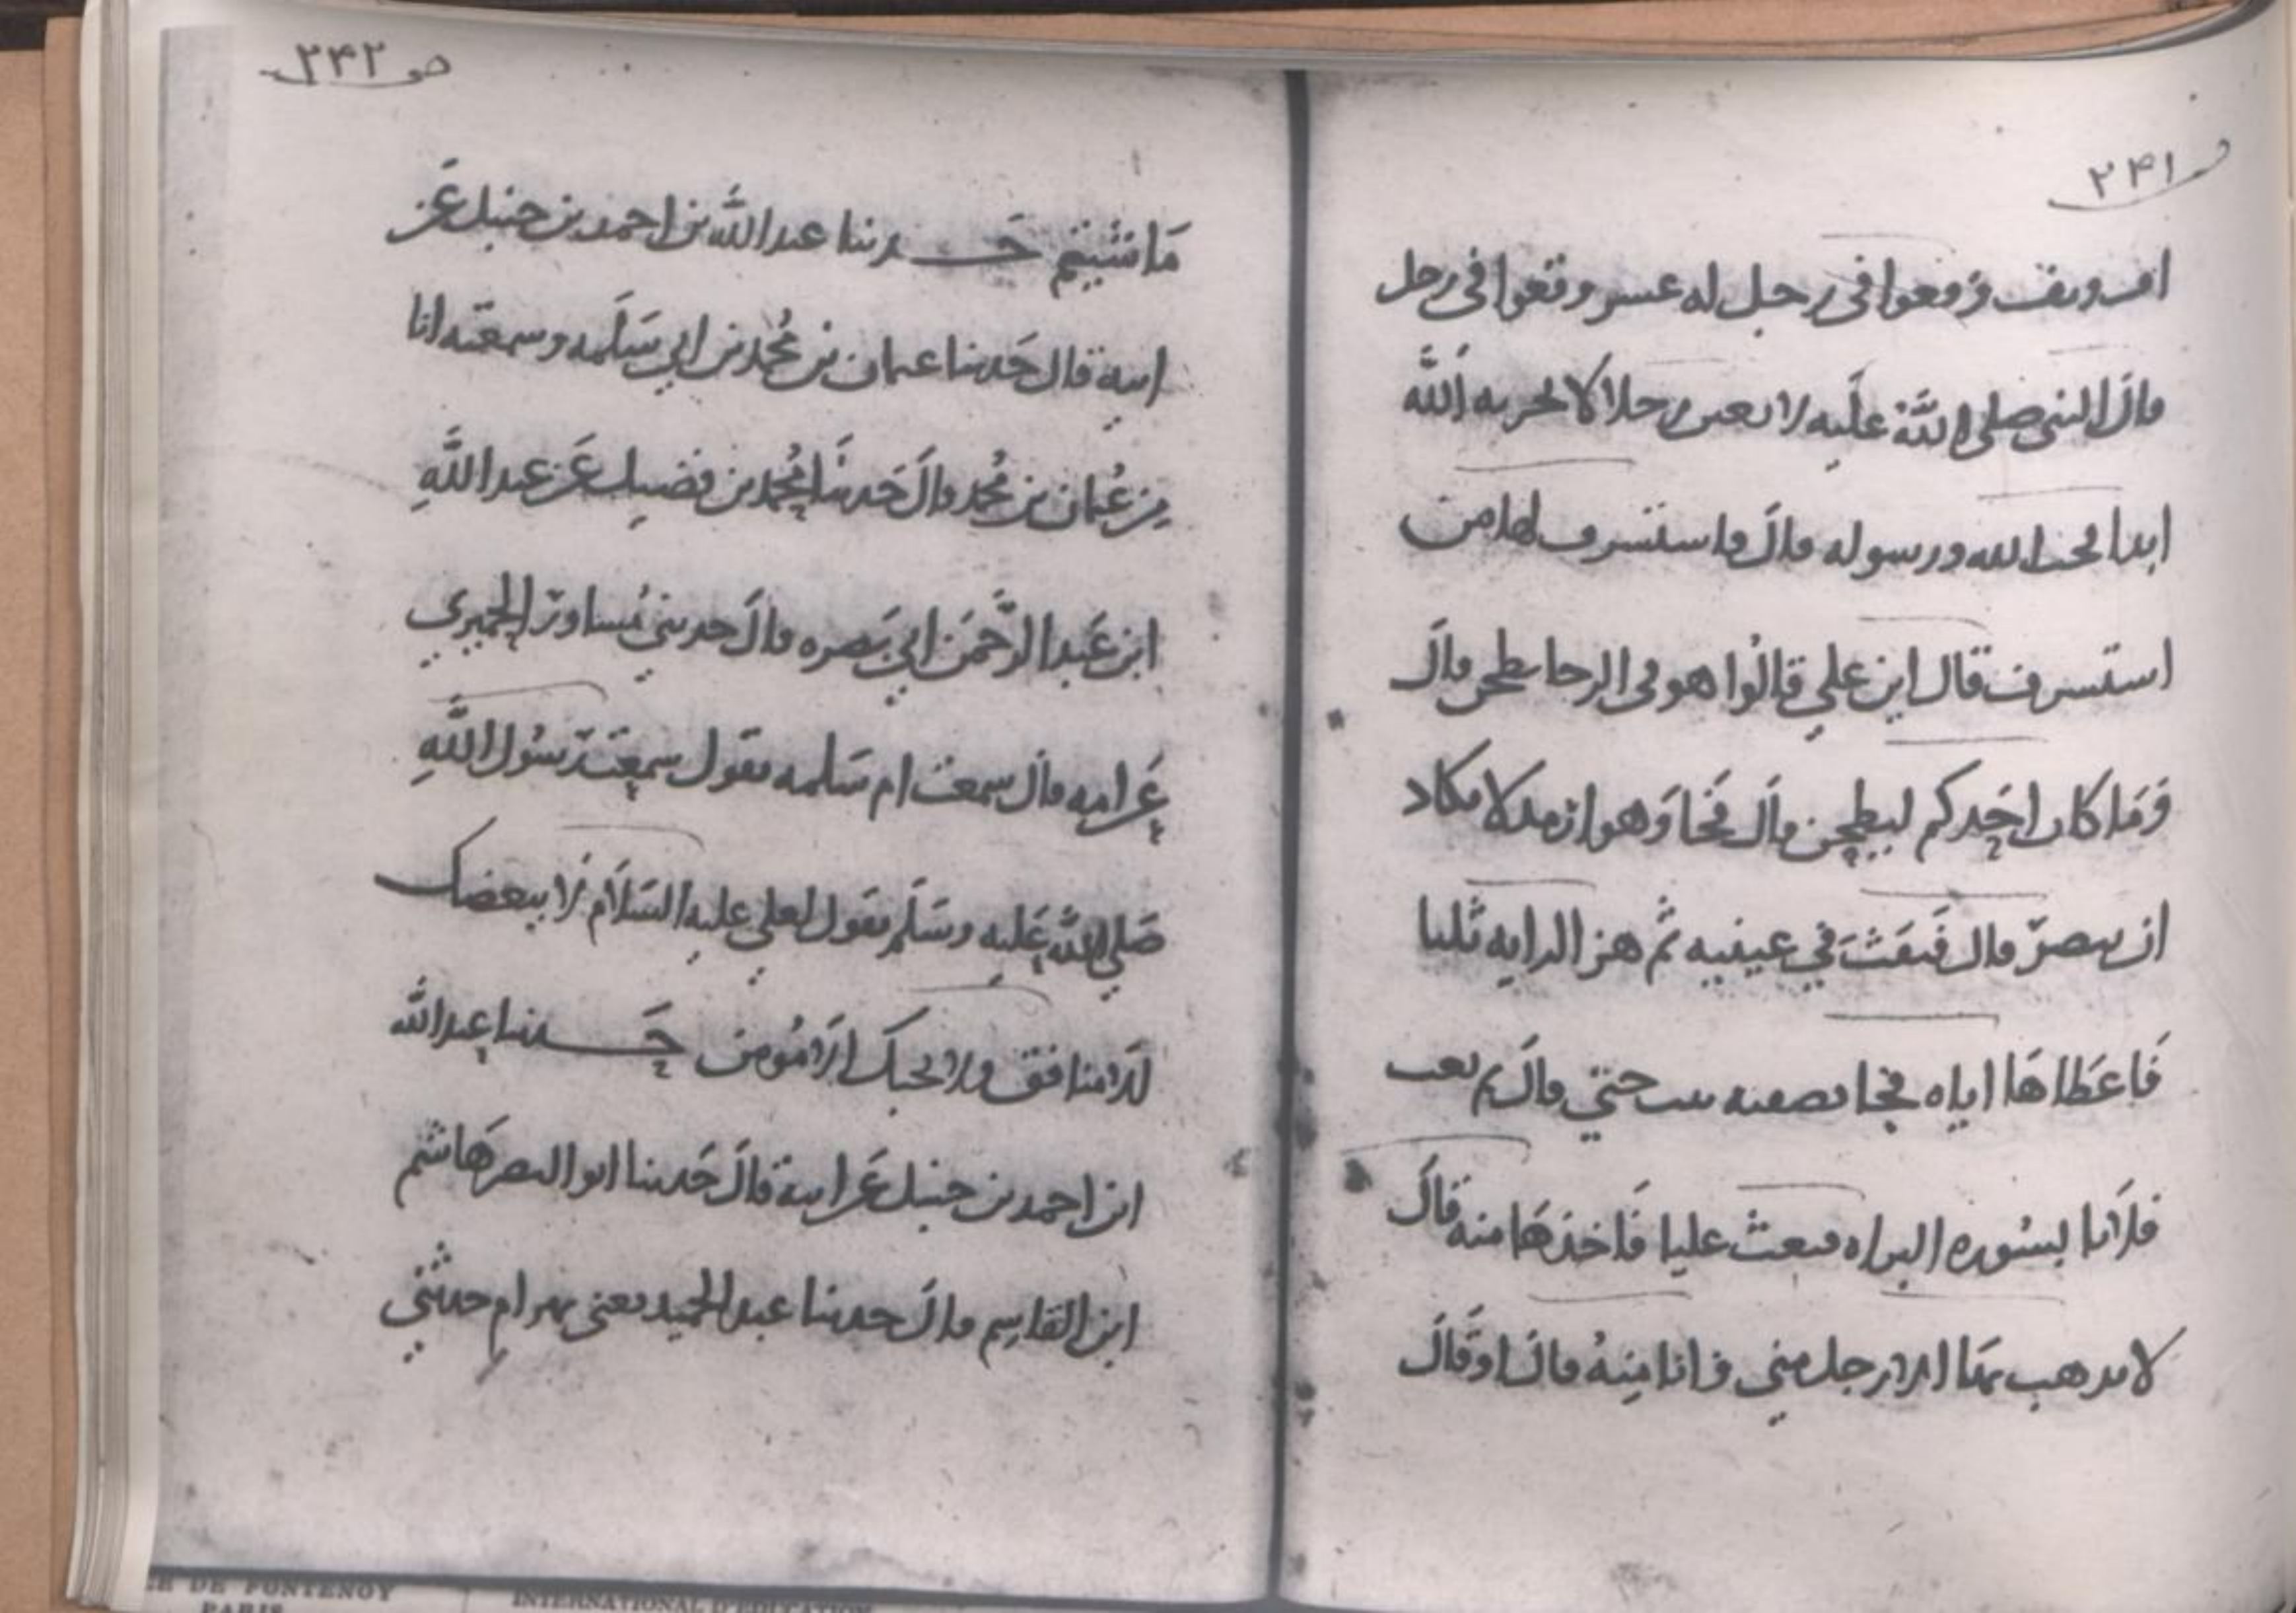 ص ٢٤١
اف وتف وقعوا في رجل له عسر وقعوا في رجل
قال النبي صلى الله عليه لابعثن رجلا لا يخزيه الله
ابدا يحب الله ورسوله قال فاستشرف لها من
استشرف قال اين علي قالوا هو في الرحا يطحن قال
وما كان احدكم ليطحن قال فجا وهو ارمد لا يكاد
ان يبصر قال فنفث في عينيه ثم هز الراية ثلثا
فاعطاها اياه فجا بصفيه بنت حيي قال ثم بعث
فلانا بسوره البراه فبعث عليا فاخذها منه قال
لا يذهب بها الا رجل مني وانا منه قال او قال
ص ٢٤٢
ما شيتم حدثنا عبد الله بن احمد بن حنبل عن
ابيه قال حدثنا عثمان بن محمد بن ابي سلمه وسمعته انا
من عثمان بن محمد قال حدثنا محمد بن فضيل عن عبد الله
ابن عبد الرحمن ابي بصره قال حدثني مساور الحميري
عن امه قال سمعت ام سلمه تقول سمعت رسول الله
صلي الله عليه وسلم يقول لعلي عليه السلام لا يبغضك
الا منافق ولا يحبك الا مومن حدثنا عبد الله
ابن احمد بن حنبل عن ابيه قال حدثنا ابو النصر هاشم
ابن القاسم قال حدثنا عبد الحميد يعني بهرام حدثني
CE DE FONTENOY
PARIS
INTERNATIONAL D'EDUCATION